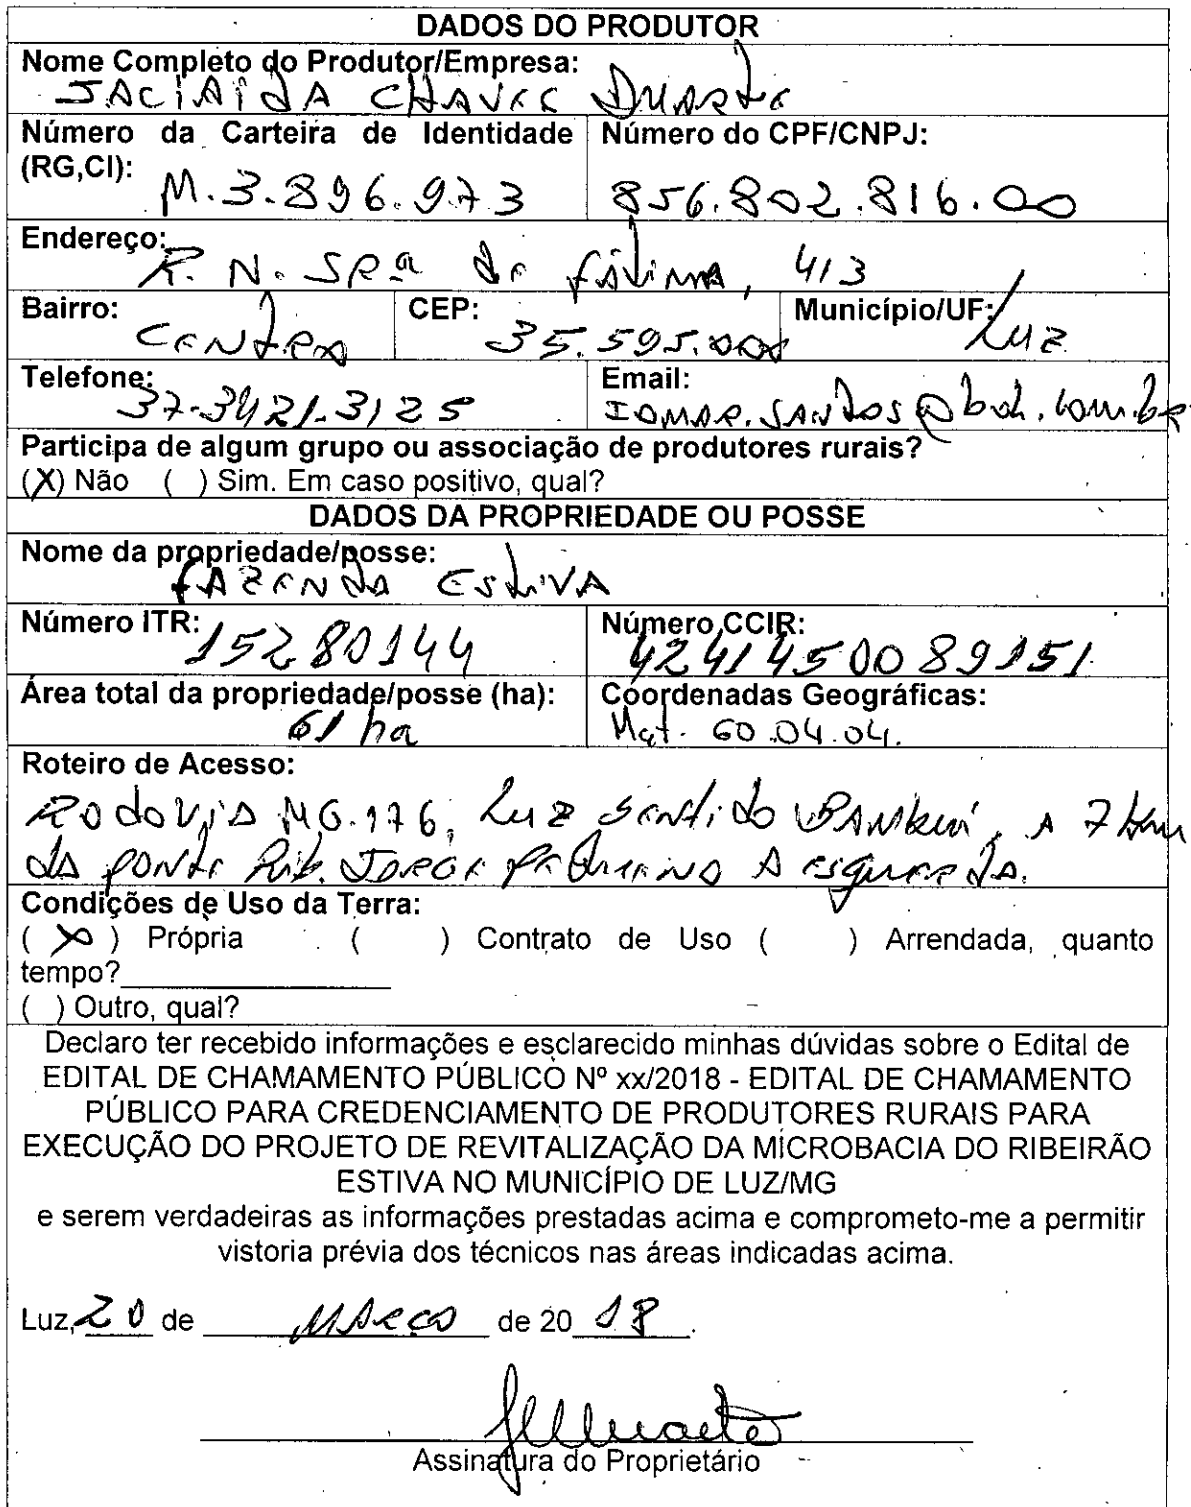 DADOS DO PRODUTOR
Nome Completo do Produtor/Empresa:
JACIAIDA CHAVES DUARTE
Número da Carteira de Identidade (RG,CI): M.3.896.973
Número do CPF/CNPJ: 856.802.816.00
Endereço: R. N. SRª de fátima, 413
Bairro: CENTRO
CEP: 35.595.000
Município/UF: Luz
Telefone: 37-3421.3125
Email: IOMAR.SANTOS@bol.com.br
Participa de algum grupo ou associação de produtores rurais?
(X) Não ( ) Sim. Em caso positivo, qual?
DADOS DA PROPRIEDADE OU POSSE
Nome da propriedade/posse:
FAZENDA ESTIVA
Número ITR: 15280144
Número CCIR: 4241450089151
Área total da propriedade/posse (ha): 61 ha
Coordenadas Geográficas:
Mat. 60.04.04.
Roteiro de Acesso:
RODOVIA MG.176, Luz sentido BAMBUÍ, A 7 km
da PONTE Rib. JORGE PEQUENO A esquerda.
Condições de Uso da Terra:
( X ) Própria ( ) Contrato de Uso ( ) Arrendada, quanto
tempo?
( ) Outro, qual?
Declaro ter recebido informações e esclarecido minhas dúvidas sobre o Edital de
EDITAL DE CHAMAMENTO PÚBLICO Nº xx/2018 - EDITAL DE CHAMAMENTO
PÚBLICO PARA CREDENCIAMENTO DE PRODUTORES RURAIS PARA
EXECUÇÃO DO PROJETO DE REVITALIZAÇÃO DA MICROBACIA DO RIBEIRÃO
ESTIVA NO MUNICÍPIO DE LUZ/MG
e serem verdadeiras as informações prestadas acima e comprometo-me a permitir
vistoria prévia dos técnicos nas áreas indicadas acima.
Luz, 20 de MARÇO de 20 18.
Assinatura do Proprietário